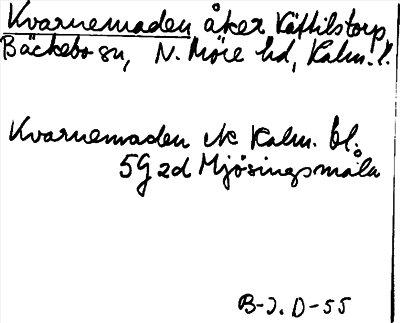 Kvarnemaden åker Kättilstorp,
Bäckebo sn, N. Möre hd, Kalm. l.
Kvarnemaden ek Kalm. bl.
5G 2d Mjösingsmåla
B-J. D-55